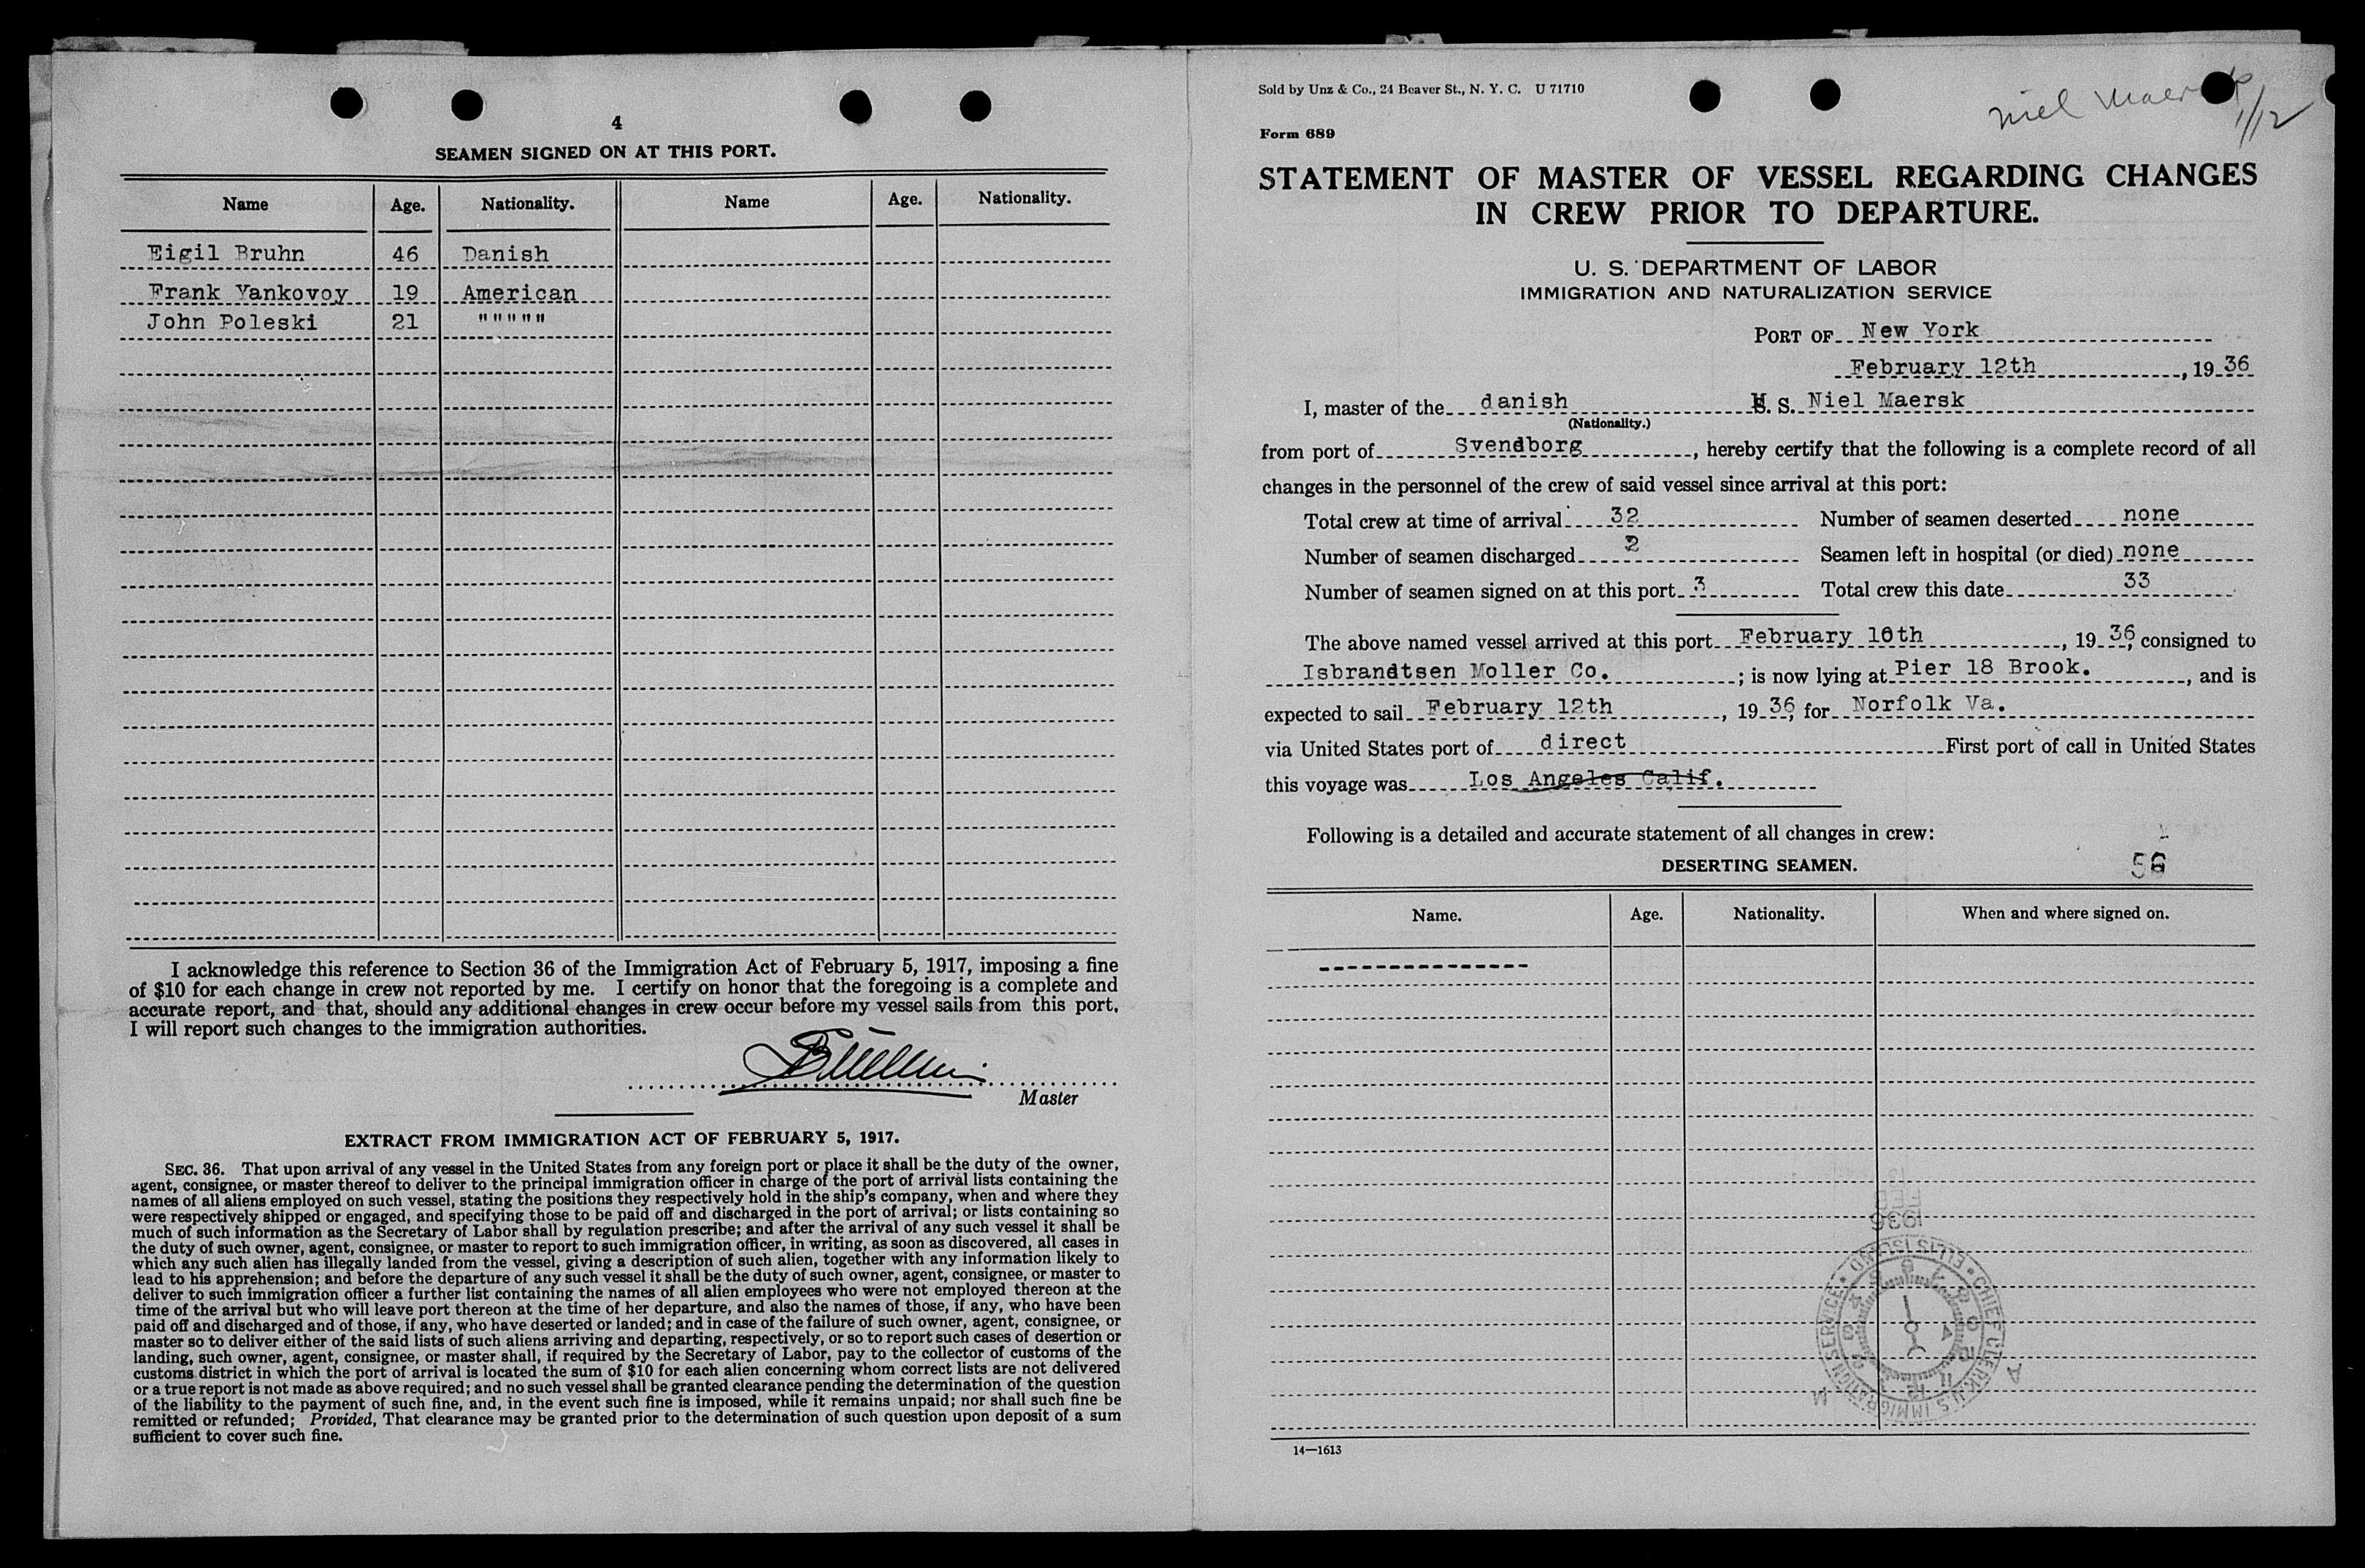 4
SEAMEN SIGNED ON AT THIS PORT.
Name Age. Nationality. Name Age. Nationality.
Eigil Bruhn 46 Danish
Frank Yankovoy 19 American
John Poleski 21 """""
I acknowledge this reference to Section 36 of the Immigration Act of February 5, 1917, imposing a fine
of $10 for each change in crew not reported by me. I certify on honor that the foregoing is a complete and
accurate report, and that, should any additional changes in crew occur before my vessel sails from this port,
I will report such changes to the immigration authorities.
Master
EXTRACT FROM IMMIGRATION ACT OF FEBRUARY 5, 1917.
SEC. 36. That upon arrival of any vessel in the United States from any foreign port or place it shall be the duty of the owner,
agent, consignee, or master thereof to deliver to the principal immigration officer in charge of the port of arrival lists containing the
names of all aliens employed on such vessel, stating the positions they respectively hold in the ship's company, when and where they
were respectively shipped or engaged, and specifying those to be paid off and discharged in the port of arrival; or lists containing so
much of such information as the Secretary of Labor shall by regulation prescribe; and after the arrival of any such vessel it shall be
the duty of such owner, agent, consignee, or master to report to such immigration officer, in writing, as soon as discovered, all cases in
which any such alien has illegally landed from the vessel, giving a description of such alien, together with any information likely to
lead to his apprehension; and before the departure of any such vessel it shall be the duty of such owner, agent, consignee, or master to
deliver to such immigration officer a further list containing the names of all alien employees who were not employed thereon at the
time of the arrival but who will leave port thereon at the time of her departure, and also the names of those, if any, who have been
paid off and discharged and of those, if any, who have deserted or landed; and in case of the failure of such owner, agent, consignee, or
master so to deliver either of the said lists of such aliens arriving and departing, respectively, or so to report such cases of desertion or
landing, such owner, agent, consignee, or master shall, if required by the Secretary of Labor, pay to the collector of customs of the
customs district in which the port of arrival is located the sum of $10 for each alien concerning whom correct lists are not delivered
or a true report is not made as above required; and no such vessel shall be granted clearance pending the determination of the question
of the liability to the payment of such fine, and, in the event such fine is imposed, while it remains unpaid; nor shall such fine be
remitted or refunded; Provided, That clearance may be granted prior to the determination of such question upon deposit of a sum
sufficient to cover such fine.
Sold by Unz & Co., 24 Beaver St., N. Y. C. U 71710
Niel Maersk
1/12
Form 689
STATEMENT OF MASTER OF VESSEL REGARDING CHANGES
IN CREW PRIOR TO DEPARTURE.
U. S. DEPARTMENT OF LABOR
IMMIGRATION AND NATURALIZATION SERVICE
PORT OF New York
February 12th, 19 36
I, master of the danish S. S. Niel Maersk
(Nationality.)
from port of Svendborg, hereby certify that the following is a complete record of all
changes in the personnel of the crew of said vessel since arrival at this port:
Total crew at time of arrival 32 Number of seamen deserted none
Number of seamen discharged 2 Seamen left in hospital (or died) none
Number of seamen signed on at this port 3 Total crew this date 33
The above named vessel arrived at this port February 10th, 19 36, consigned to
Isbrandtsen Moller Co.; is now lying at Pier 18 Brook., and is
expected to sail February 12th, 19 36, for Norfolk Va.
via United States port of direct First port of call in United States
this voyage was Los Angeles Calif.
Following is a detailed and accurate statement of all changes in crew:
DESERTING SEAMEN.
Name. Age. Nationality. When and where signed on.
FEB
1936
CHIEF CLERK U.S. IMMIGRATION SERVICE • ELLIS ISLAND •
A M
14—1613